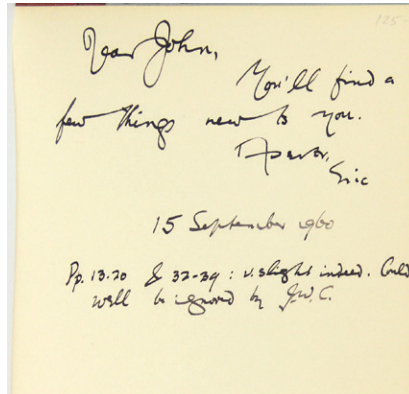 125-
Dear John,
You'll find a
few things new to you.
Eric
15 September 1960
Pp. 13-20 & 32-39: v. slight indeed. Could
well be ignored by J.W.C.